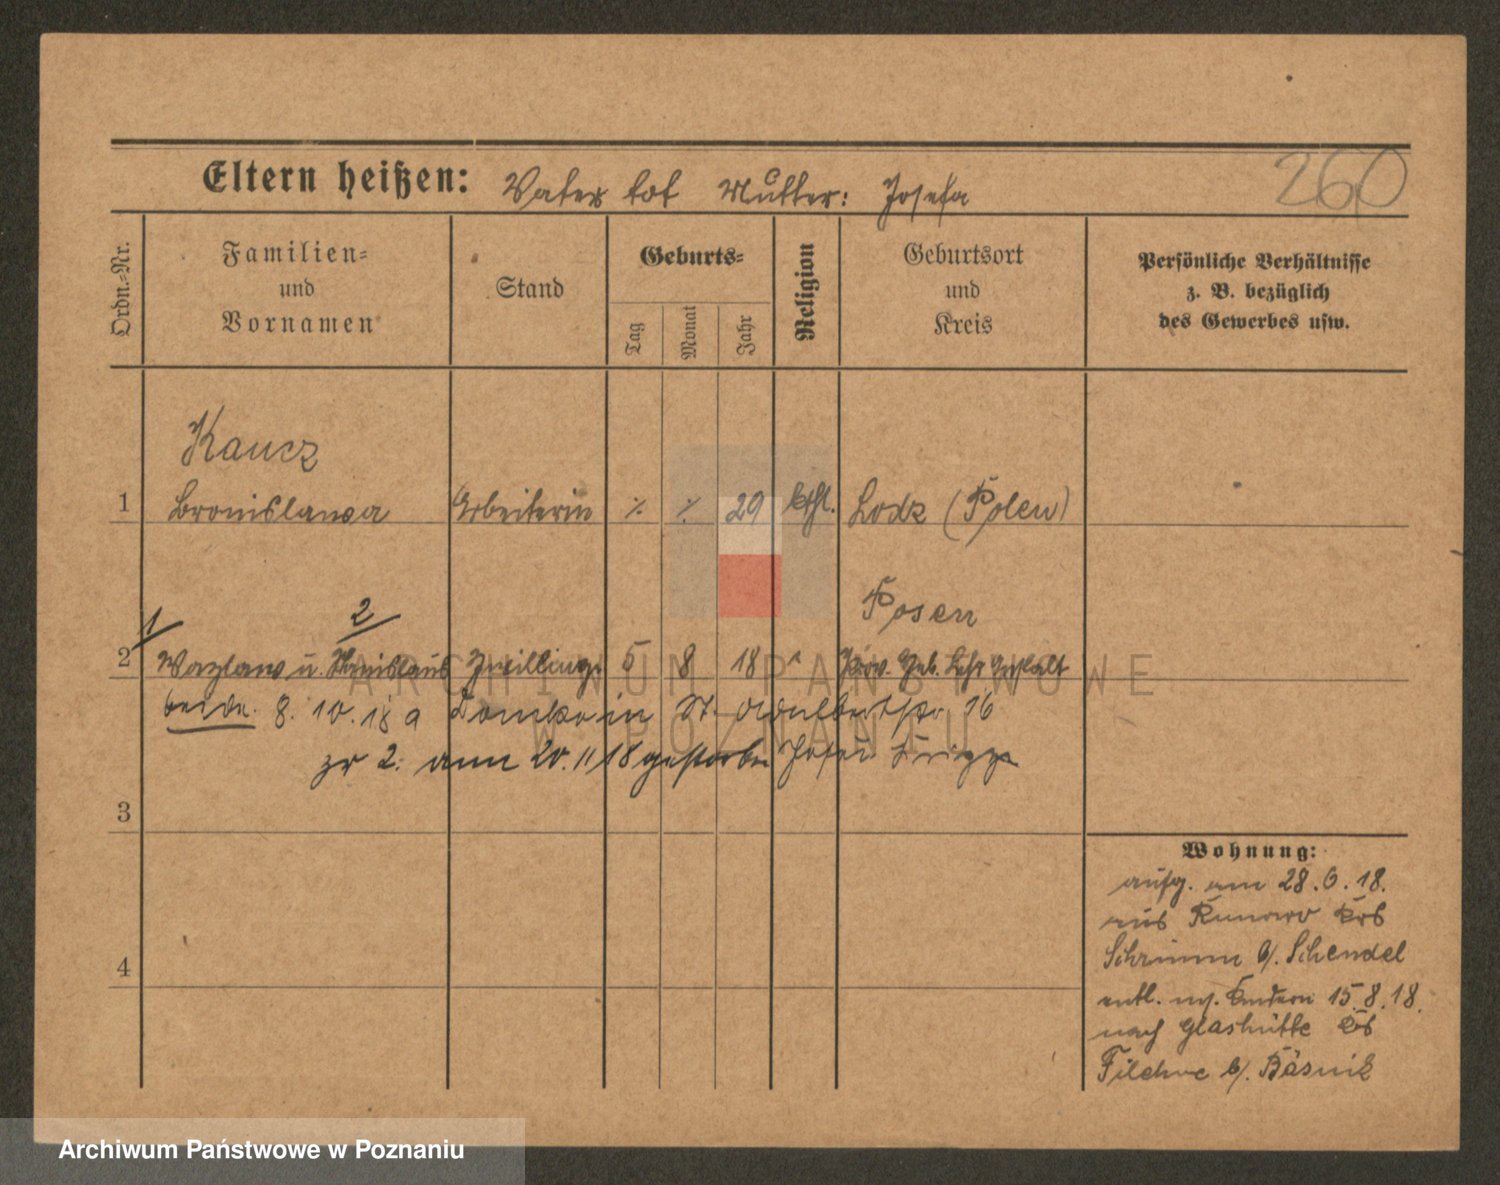 260
Eltern heißen: Vater tot Mutter: Josefa
Ordn.-Nr.
Familien-
und
Vornamen
Stand
Geburts-
Tag
Monat
Jahr
Religion
Geburtsort
und
Kreis
Persönliche Verhältnisse
z. B. bezüglich
des Gewerbes usw.
Kaucz
1 Bronislawa Arbeiterin ٪ ٪ 29 kthl. Lodz (Polen)
1 2 Posen
2 Wazlaw u. Stanislaus Zwillinge 5 8 18 " Prov. Geb. Lehr Anstalt
beide. 8. 10. 18 a in St. Adalbertstr. 16
zu 2. am 20. 11 18 gestorben
3
4
Wohnung:
aufg. am 28. 6. 18.
aus Kunowo Krs
Schrimm b/. Schendel
entl. m. Kindern 15. 8. 18.
nach Glashütte Krs
Filehne b/. Bäsnik
ARCHIWUM PAŃSTWOWE
W POZNANIU
Archiwum Państwowe w Poznaniu